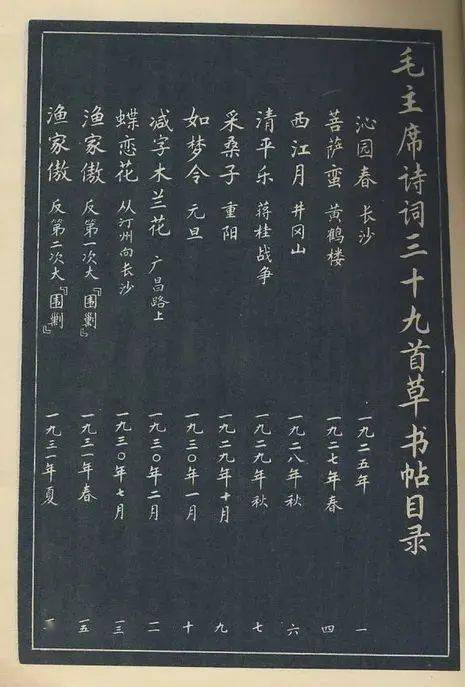 毛主席诗词三十九首草书帖目录
沁园春 长沙 一九二五年 一
菩萨蛮 黄鹤楼 一九二七年春 四
西江月 井冈山 一九二八年秋 六
清平乐 蒋桂战争 一九二九年秋 七
采桑子 重阳 一九二九年十月 九
如梦令 元旦 一九三〇年一月 十
减字木兰花 广昌路上 一九三〇年二月 一一
蝶恋花 从汀州向长沙 一九三〇年七月 一三
渔家傲 反第一次大『围剿』 一九三一年春 一五
渔家傲 反第二次大『围剿』 一九三一年夏